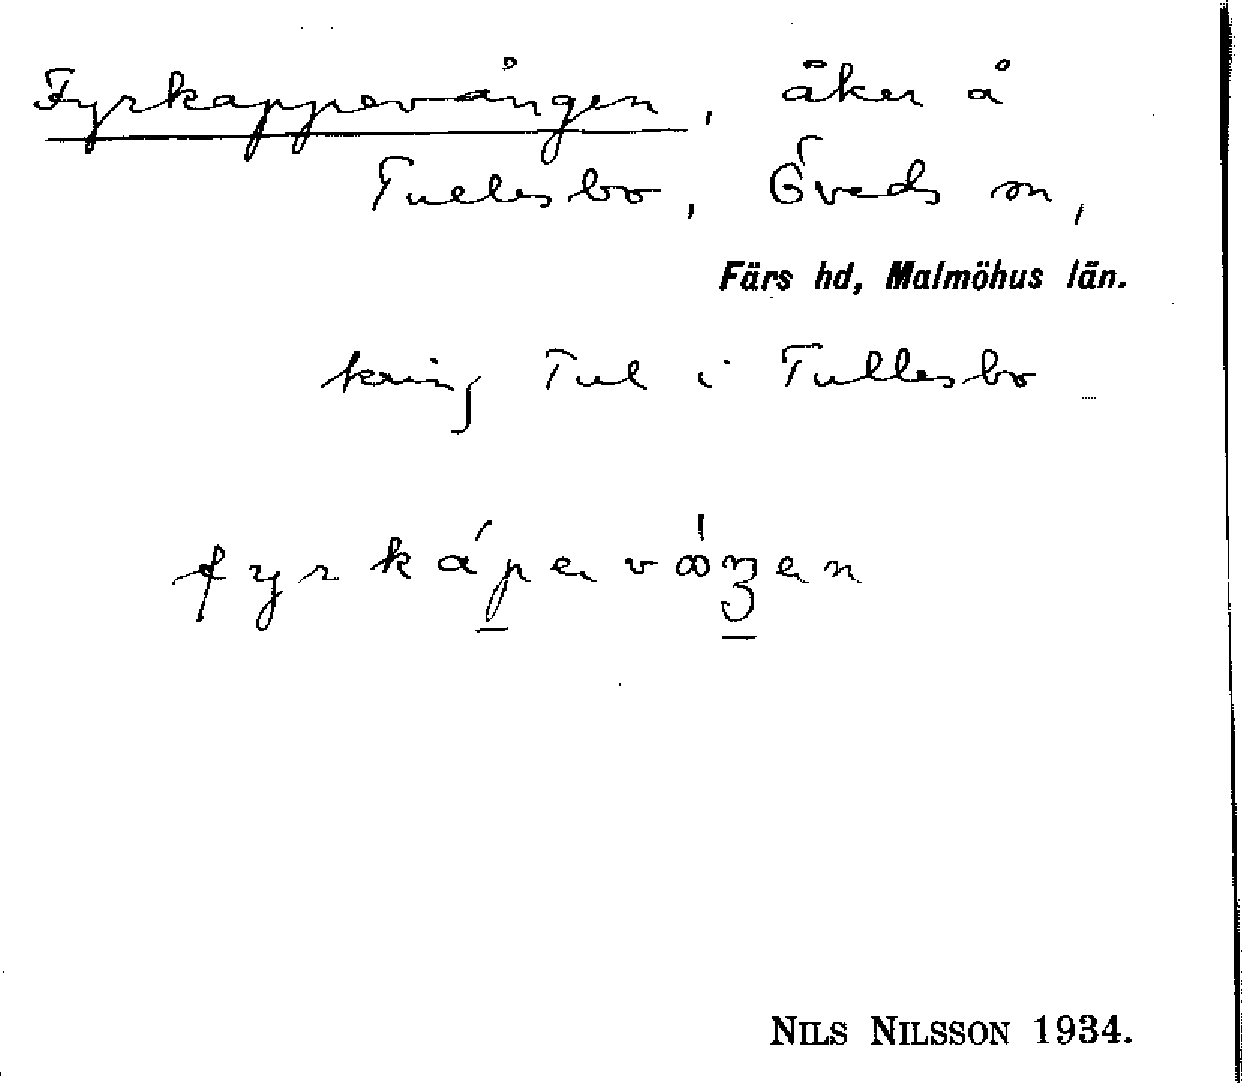 Fyrkappevången, åker å
Tullesbo, Öveds sn,
Färs hd, Malmöhus län.
kring Tul i Tullesbo
fyrkápevåʒen
NILS NILSSON 1934.